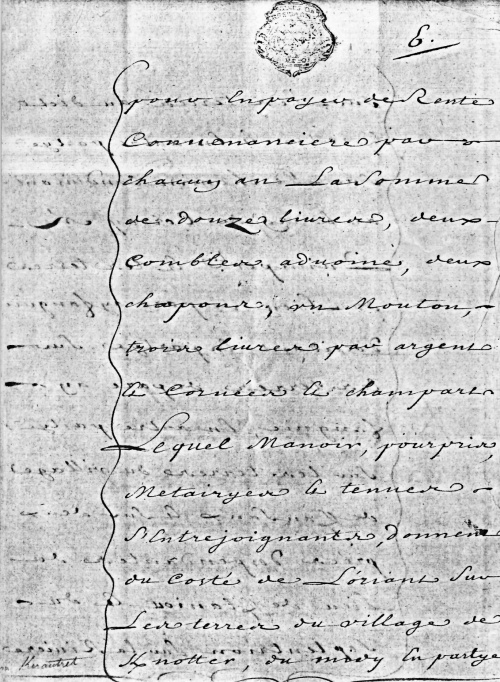 6.
pour En payer de Rente
Conuenanciere par
chacun an La Somme
de douze liures, deux
Combles aduoine, deux
chapons, un Mouton,
trois liures par argent
& Coruées & champart
Lequel Manoir, pourpris,
Metairyes & tenues
S'Entrejoignants, donnent
du Costé de L'oriant Sur
Les terres du village de
Knotter, du midy En partye
Kerautret